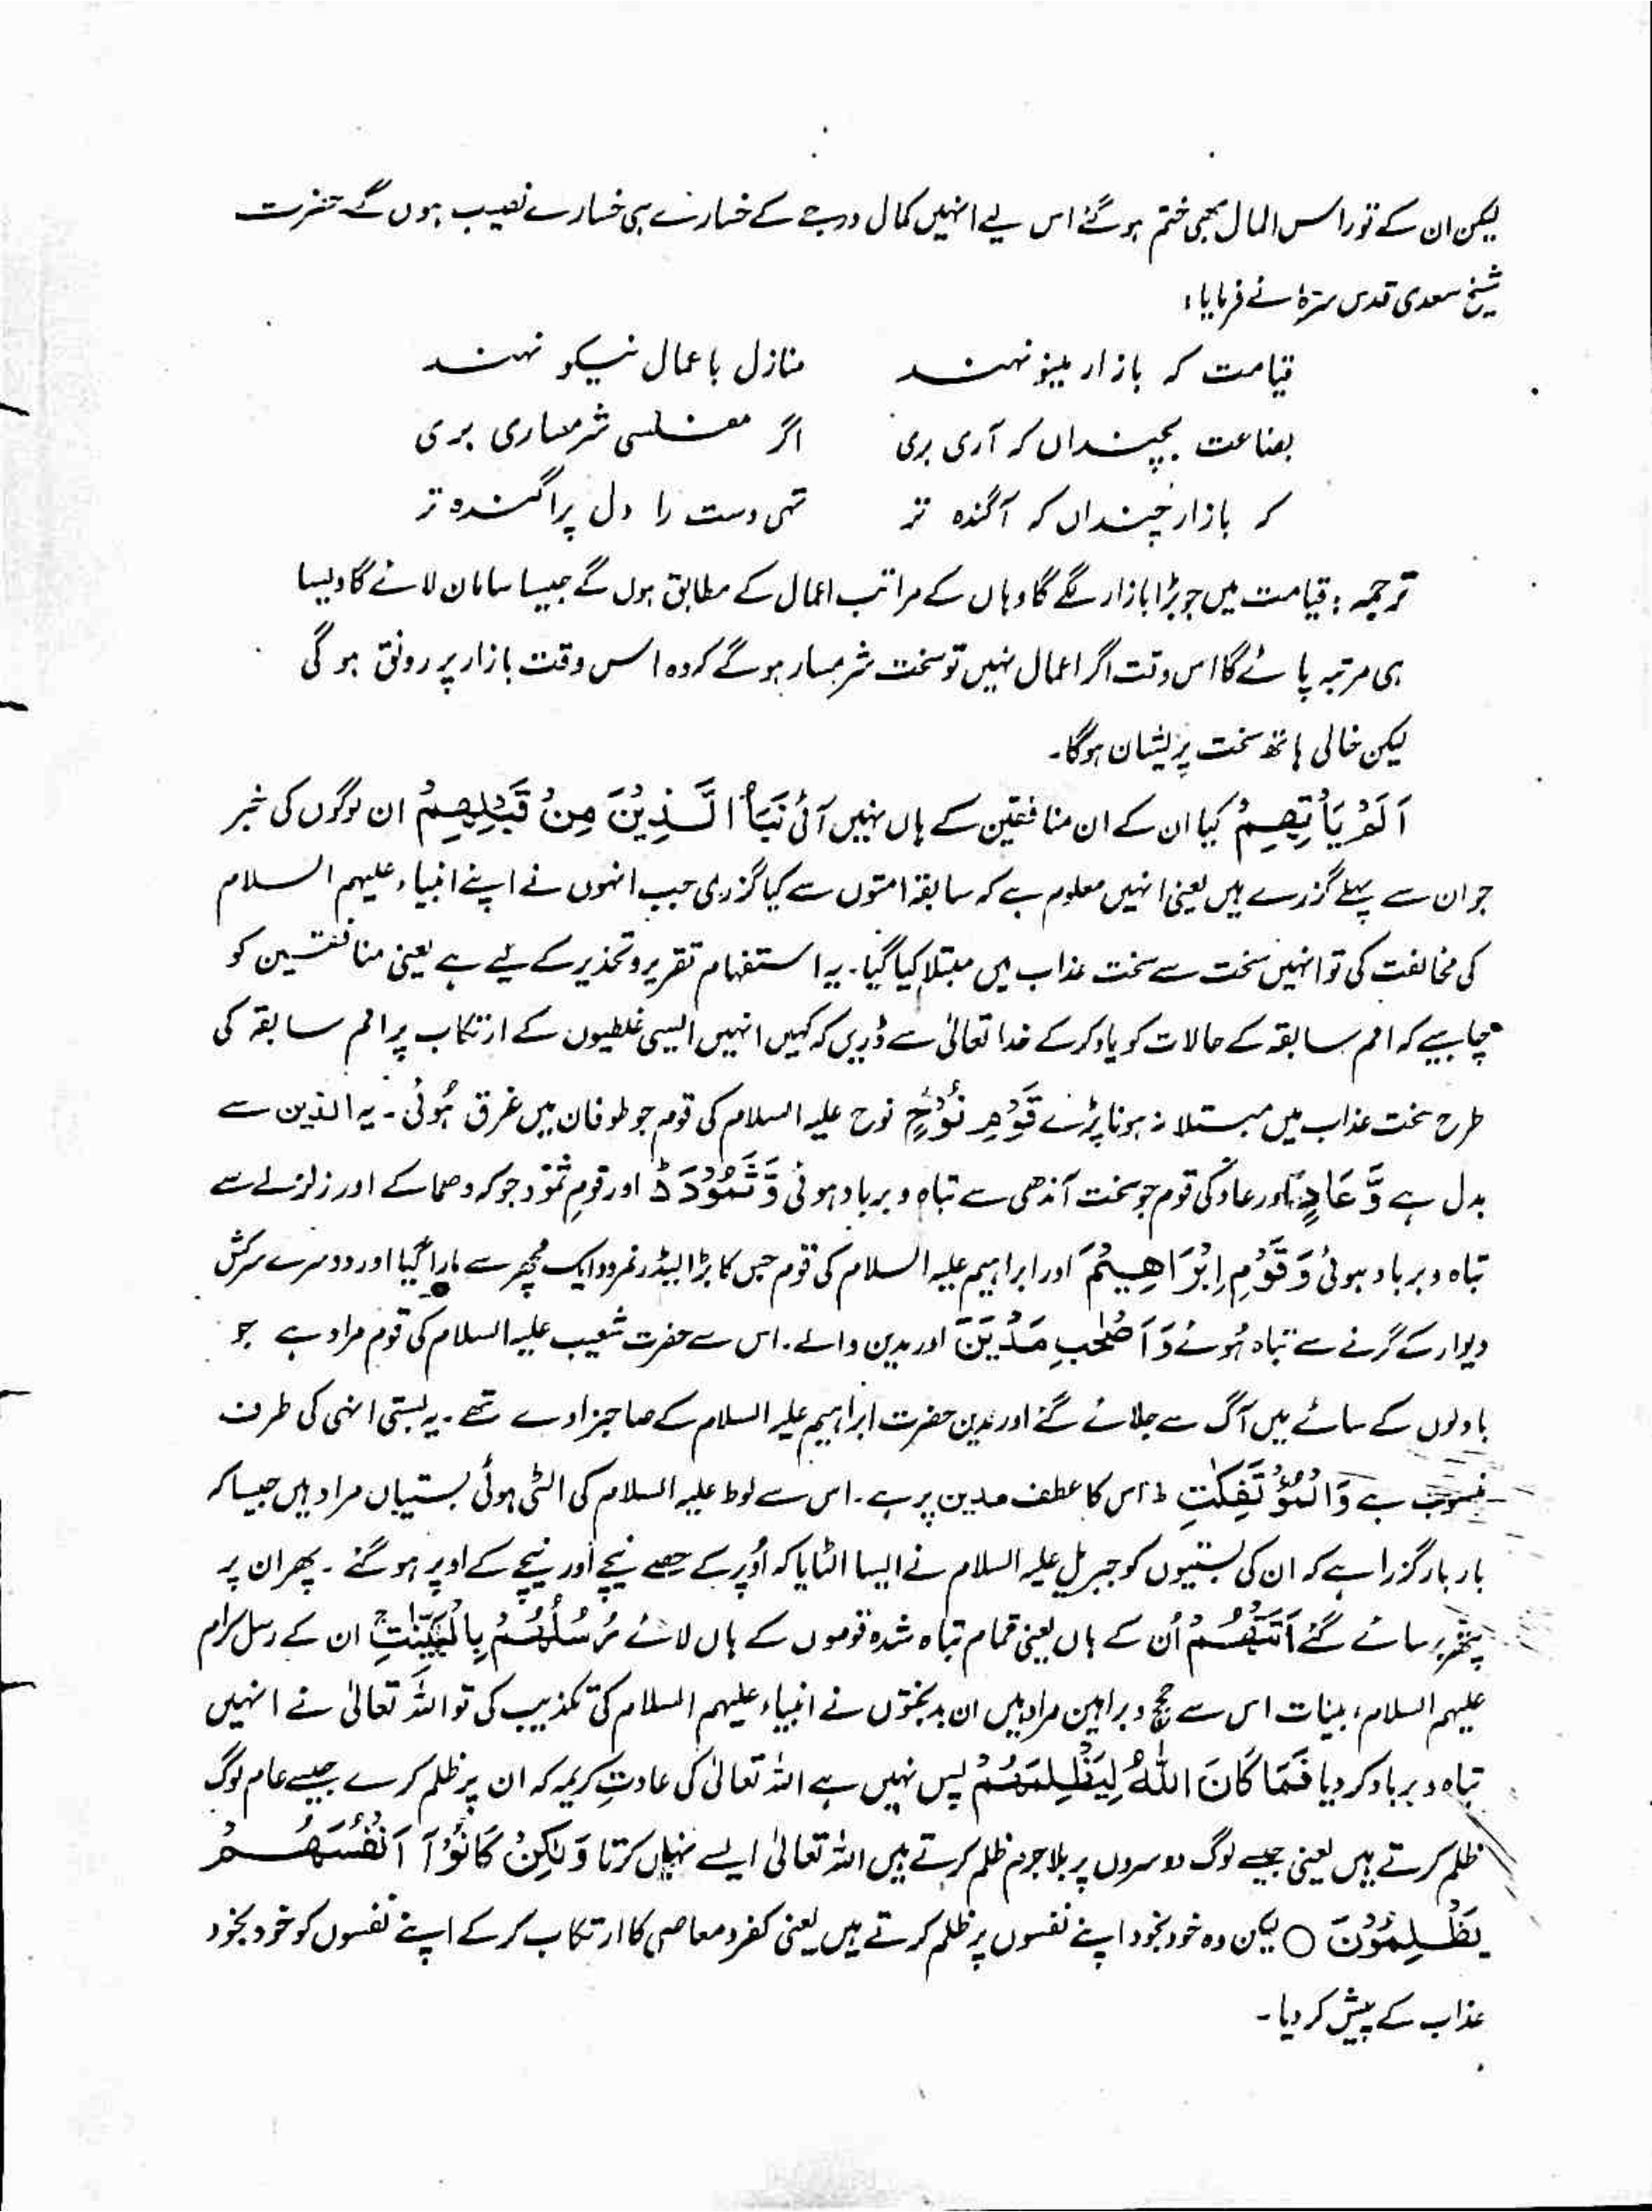 لیکن ان کے تو راس المال بھی ختم ہو گئے اس لیے انہیں کمال درجے کے خسارے ہی خسارے نصیب ہوں گے حضرت
شیخ سعدی قدس سرہٗ نے فرمایا:
قیامت کہ بازار مینو نہند منازل باعمال نیکو نہند
بضاعت بچنداں کہ آری بری اگر مفلسی شرمساری بری
کہ بازار چنداں کہ آگندہ تر تہی دست را دل پراگندہ تر
ترجمہ: قیامت میں جو بڑا بازار لگے گا وہاں کے مراتب اعمال کے مطابق ہوں گے جیسا سامان لائے گا ویسا
ہی مرتبہ پائے گا اس وقت اگر اعمال نہیں تو سخت شرمسار ہو گے کہ وہ اس وقت بازار پر رونق ہو گی
لیکن خالی ہاتھ سخت پریشان ہوگا۔
اَلَمْ یَاْتِهِمْ کیا ان کے ان منافقین کے ہاں نہیں آئی نَبَاُ الَّذِیْنَ مِنْ قَبْلِهِمْ ان لوگوں کی خبر
جو ان سے پہلے گزرے ہیں یعنی انہیں معلوم ہے کہ سابقہ امتوں سے کیا گزری جب انہوں نے اپنے انبیاء علیہم السلام
کی مخالفت کی تو انہیں سخت سے سخت عذاب میں مبتلا کیا گیا۔ یہ استفہام تقریر و تحذیر کے لیے ہے یعنی منافقین کو
چاہیے کہ امم سابقہ کے حالات کو یاد کر کے خدا تعالیٰ سے ڈریں کہ کہیں انہیں ایسی غلطیوں کے ارتکاب پر امم سابقہ کی
طرح سخت عذاب میں مبتلا نہ ہونا پڑے قَوْمِ نُوْحٍ نوح علیہ السلام کی قوم جو طوفان میں غرق ہُوئی۔ یہ الذین سے
بدل ہے وَّ عَادٍ اور عاد کی قوم جو سخت آندھی سے تباہ و برباد ہوئی وَّ ثَمُوْدَ اور قومِ ثمود جو کہ دھماکے اور زلزلے سے
تباہ و برباد ہوئی وَ قَوْمِ اِبْرَاهِیْمَ اور ابراہیم علیہ السلام کی قوم جس کا بڑا لیڈر نمرود ایک مچھر سے مارا گیا اور دوسرے سرکش
دیوار کے گرنے سے تباہ ہُوئے وَ اَصْحٰبِ مَدْیَنَ اور مدین والے۔ اس سے حضرت شعیب علیہ السلام کی قوم مراد ہے جو
بادلوں کے سائے میں آگ سے جلائے گئے اور مدین حضرت ابراہیم علیہ السلام کے صاحبزادے تھے۔ یہ بستی انہی کی طرف
منسوب ہے وَ الْمُؤْتَفِكٰتِ ط اس کا عطف مدین پر ہے۔ اس سے لوط علیہ السلام کی الٹی ہوئی بستیاں مراد ہیں جیسا کہ
بار بار گزرا ہے کہ ان کی بستیوں کو جبریل علیہ السلام نے ایسا الٹایا کہ اُوپر کے حصے نیچے اور نیچے کے اوپر ہو گئے۔ پھر ان پر
پتھر برسائے گئے اَتَتْهُمْ اُن کے ہاں یعنی تمام تباہ شدہ قوموں کے ہاں لائے رُسُلُهُمْ بِالْبَیِّنٰتِ ان کے رسل کرام
علیہم السلام، بینات اس سے حجج و براہین مراد ہیں ان بدبختوں نے انبیاء علیہم السلام کی تکذیب کی تو اللہ تعالیٰ نے انہیں
تباہ و برباد کر دیا فَمَا كَانَ اللّٰهُ لِیَظْلِمَهُمْ پس نہیں ہے اللہ تعالیٰ کی عادتِ کریمہ کہ ان پر ظلم کرے جیسے عام لوگ
ظلم کرتے ہیں یعنی جیسے لوگ دوسروں پر بلاجرم ظلم کرتے ہیں اللہ تعالیٰ ایسے نہیں کرتا وَ لٰكِنْ كَانُوْۤا اَنْفُسَهُمْ
یَظْلِمُوْنَ ○ لیکن وہ خود بخود اپنے نفسوں پر ظلم کرتے ہیں یعنی کفر و معاصی کا ارتکاب کر کے اپنے نفسوں کو خود بخود
عذاب کے پیش کر دیا۔